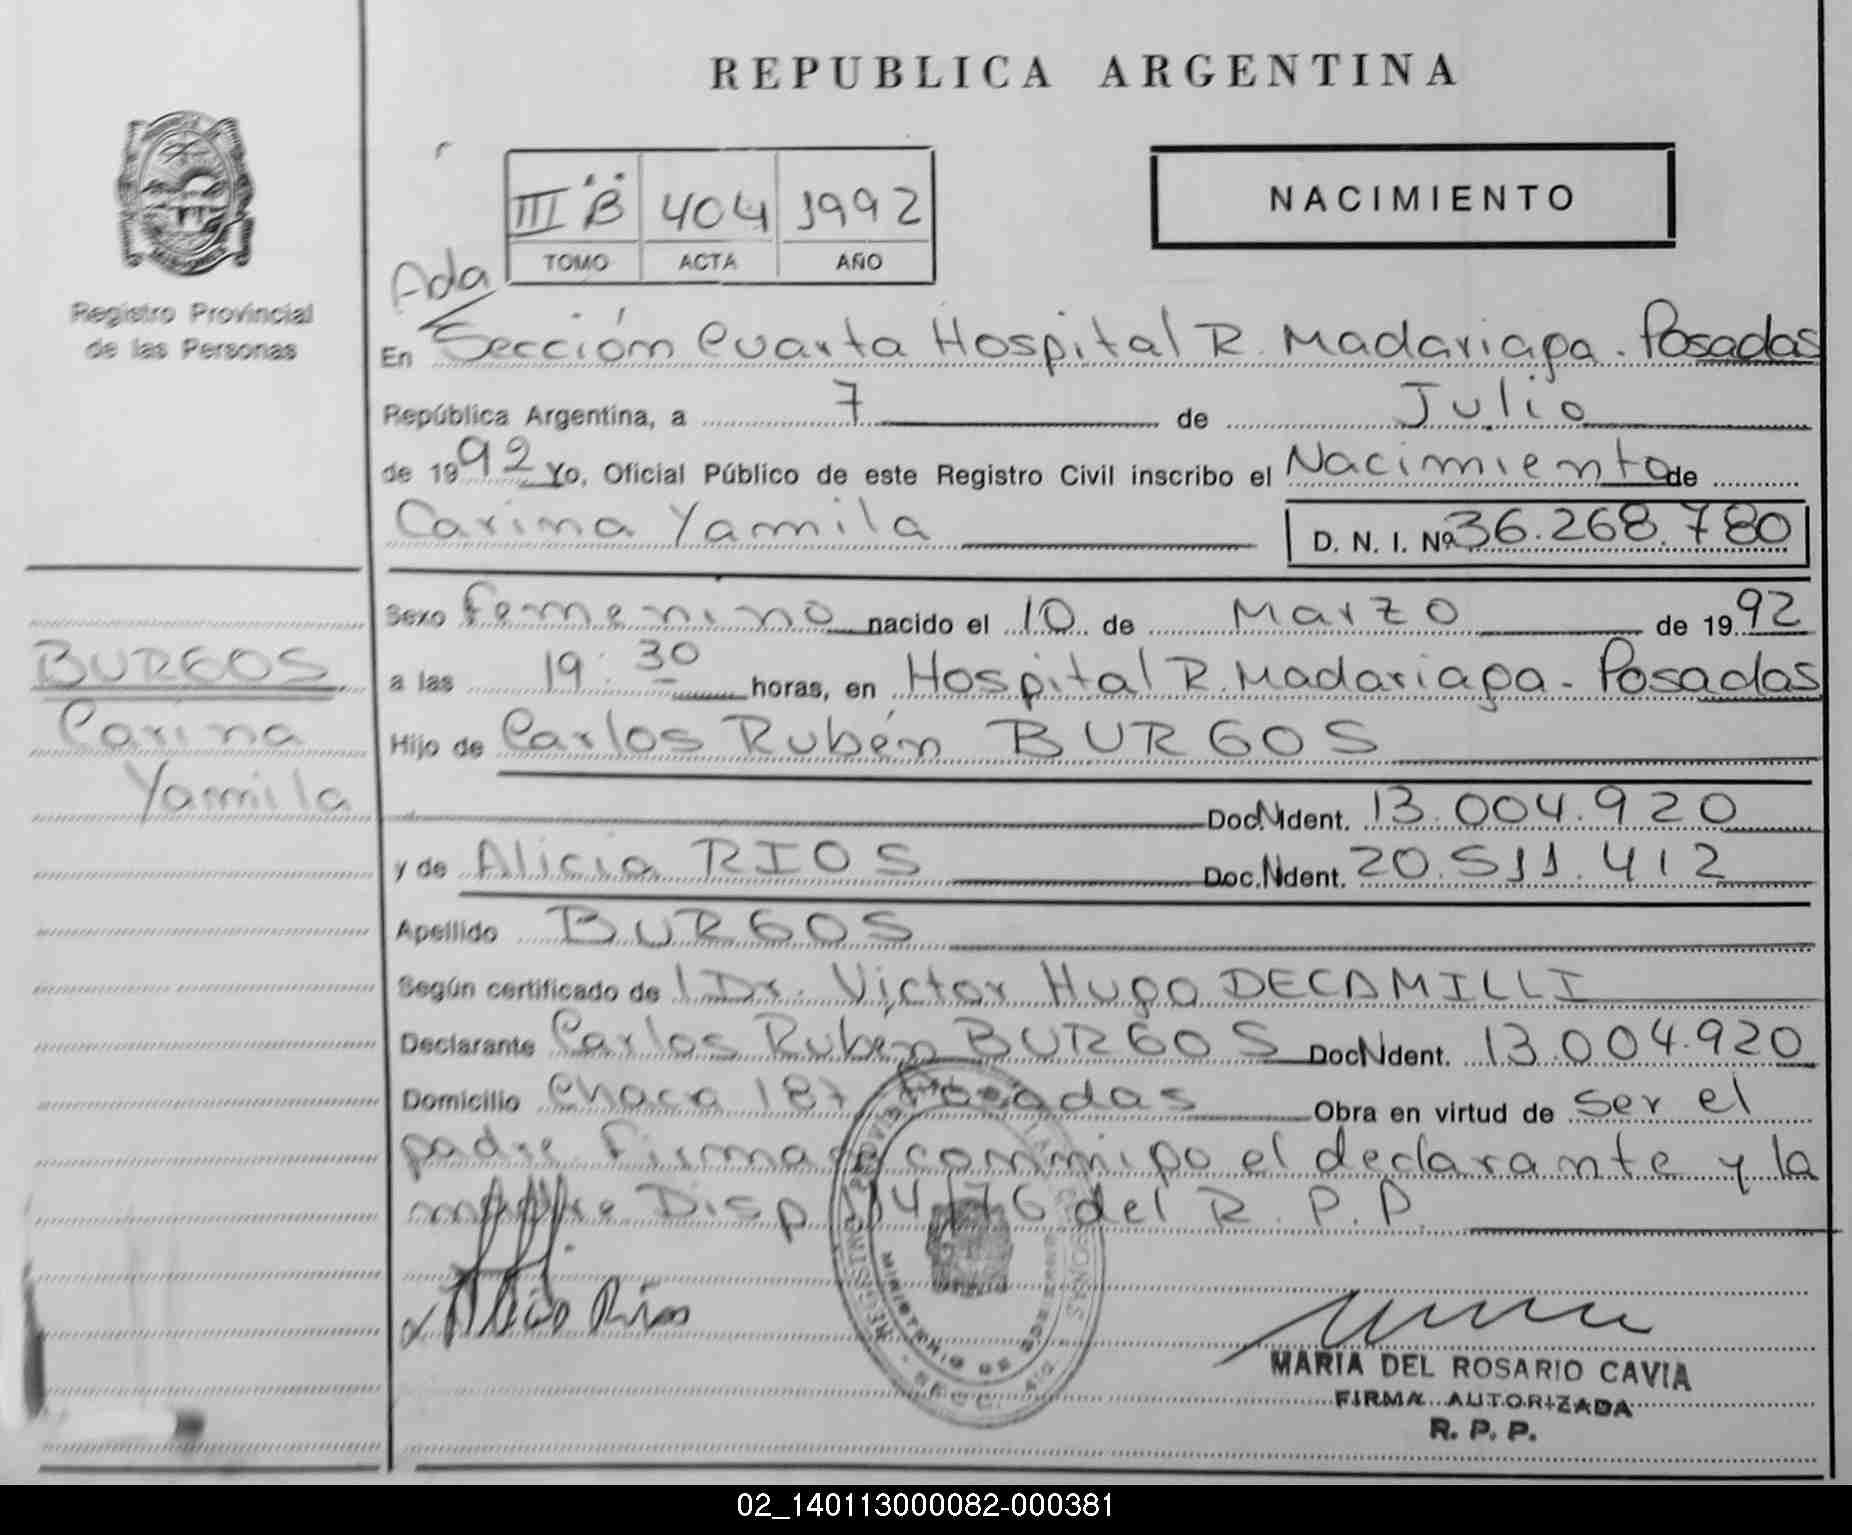 REPUBLICA ARGENTINA
III B 404 1992
TOMO ACTA AÑO
NACIMIENTO
Registro Provincial
de las Personas
Ada
En Sección Cuarta Hospital R. Madariaga. Posadas
República Argentina, a 7 de Julio
de 1992 Yo, Oficial Público de este Registro Civil inscribo el Nacimiento de
Carina Yamila D. N. I. Nº 36.268.780
Sexo femenino nacido el 10 de Marzo de 1992
BURGOS
Carina
Yamila
a las 19:30 horas, en Hospital R. Madariaga - Posadas
Hijo de Carlos Rubén BURGOS
Doc. N Ident. 13.004.920
y de Alicia RIOS Doc. N Ident. 20.511.412
Apellido BURGOS
Según certificado de l Dr. Victor Hugo DECAMILLI
Declarante Carlos Ruben BURGOS Doc N Ident. 13.004.920
Domicilio Chaca 187 Posadas Obra en virtud de ser el
padre. Firman conmigo el declarante y la
madre Disp 114/76 del R. P. P.
Alicia Rios
MINISTERIO DE GOBIERNO
MARIA DEL ROSARIO CAVIA
FIRMA AUTORIZADA
R. P. P.
02_140113000082-000381